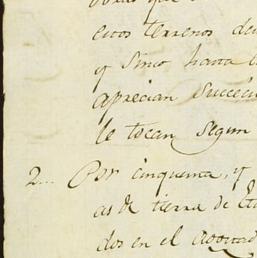 obras que
estos terrenos de
y sino hasta
aprecian succeci
le tocan segun
2... Por cinquenta, y
as de tierra de
dos en el